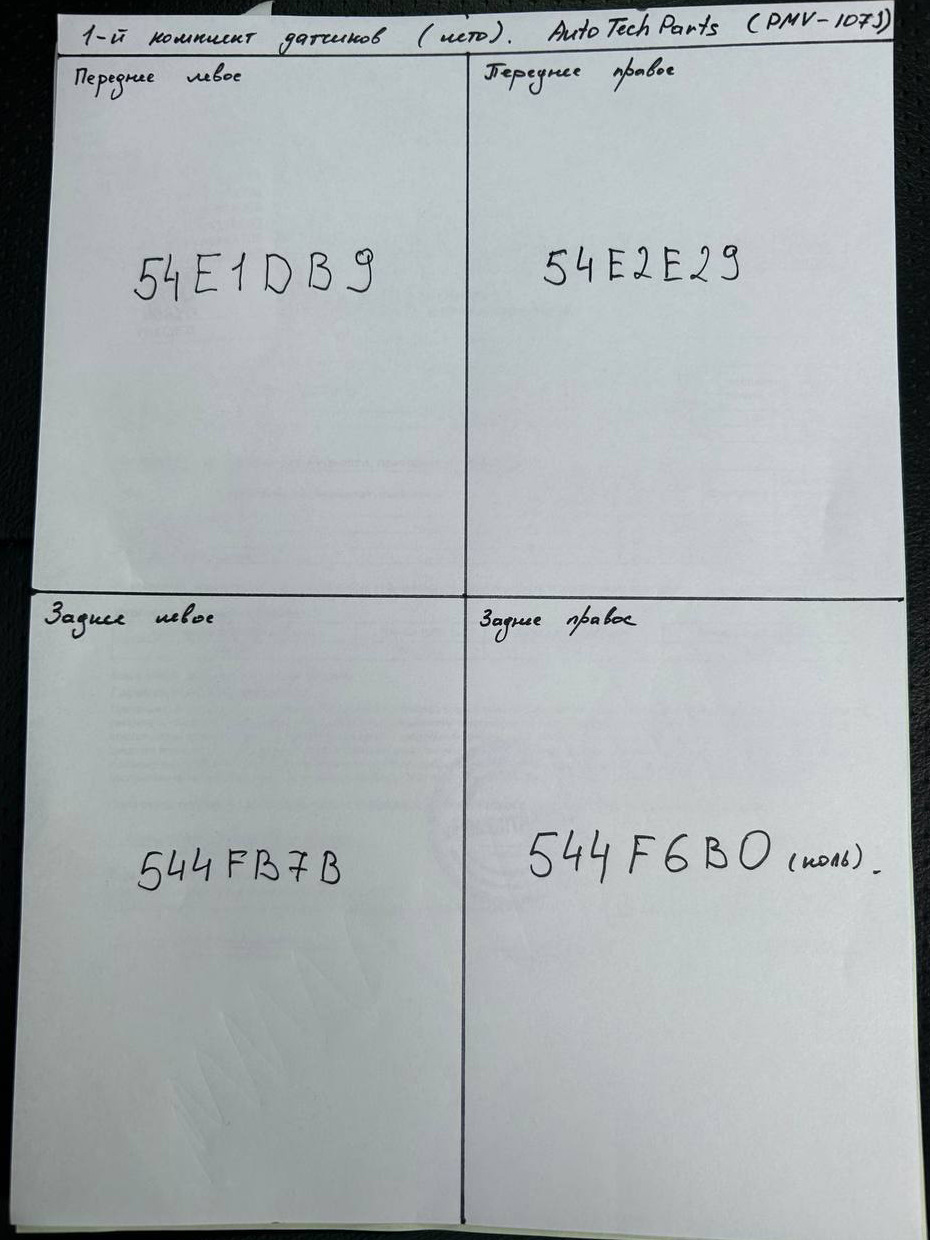 1-й комплект датчиков (лето). Auto Tech Parts (PMV-107J)
Переднее левое
Переднее правое
54E1DB9
54E2E29
Заднее левое
Заднее правое
544FB7B
544F6B0 (ноль).